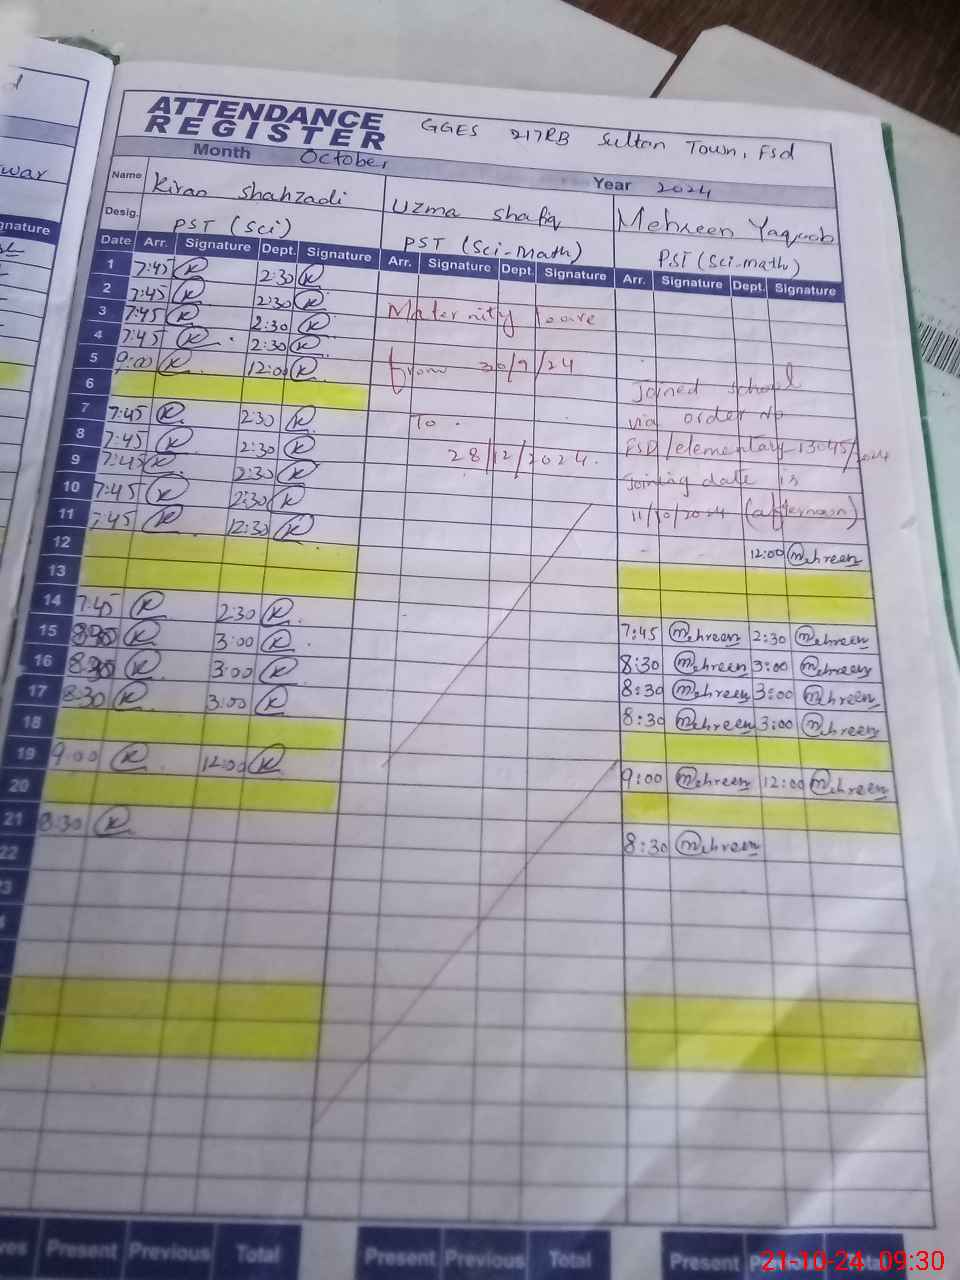 ATTENDANCE
REGISTER
GGES 217RB Sultan Town, Fsd
Month October
Year 2024
Name Kiran Shahzadi
Uzma Shafiq
Mehreen Yaqoob
Desig. PST (Sci)
PST (Sci-Math)
PST (Sci-math)
Date Arr. Signature Dept. Signature Arr. Signature Dept. Signature Arr. Signature Dept. Signature
war
gnature
1 7:45 K 2:30 K
2 7:45 K 2:30 K
3 7:45 K 2:30 K
4 7:45 K 2:30 K
5 9:00 K 12:00 K
6
7 7:45 K 2:30 K
8 7:45 K 2:30 K
9 7:45 K 2:30 K
10 7:45 K 2:30 K
11 7:45 K 12:30 K
12
13
14 7:45 K 2:30 K
15 K 3:00 K
16 K 3:00 K
17 8:30 K 3:00 K
18
19 9:00 K 12:00 K
20
21 8:30 K
22
Maternity leave
from 30/9/24
To
28/12/2024.
Joined school
via order No
FSD/elementary-13045/2024
Joining date is
11/10/2024 (afternoon)
12:00 Mehreen
7:45 Mehreen 2:30 Mehreen
8:30 Mehreen 3:00 Mehreen
8:30 Mehreen 3:00 Mehreen
8:30 Mehreen 3:00 Mehreen
9:00 Mehreen 12:00 Mehreen
8:30 Mehreen
Present Previous Total
Present Previous Total
Present
21-10-24 09:30